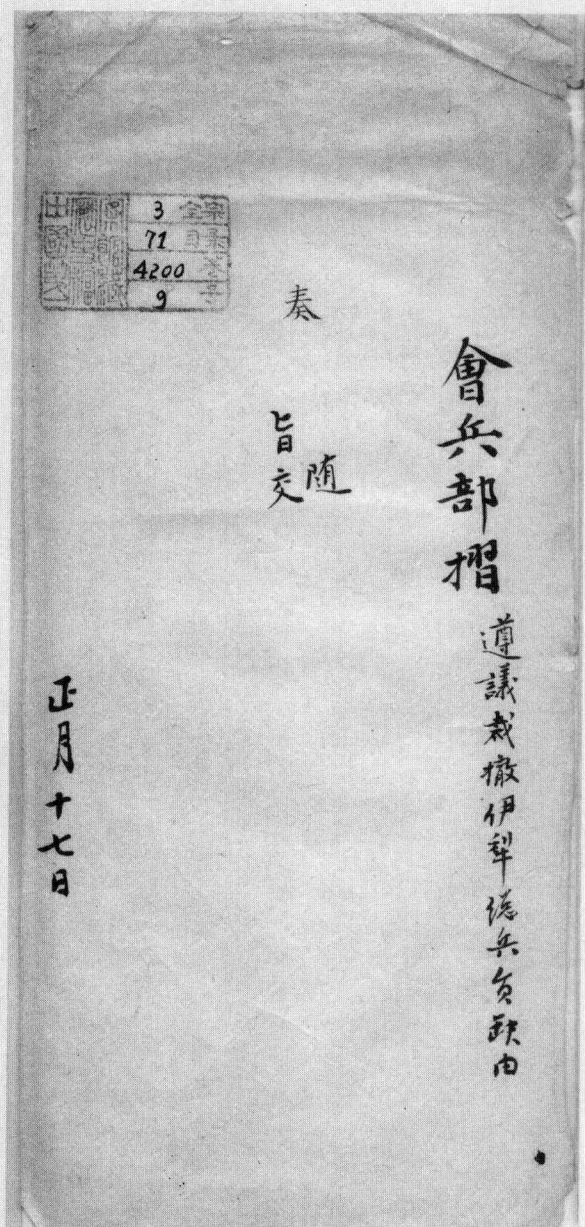 會兵部摺 遵議裁撤伊犁總兵員缺由
奏
随
旨交
正月十七日
3 全宗
71
4200
9